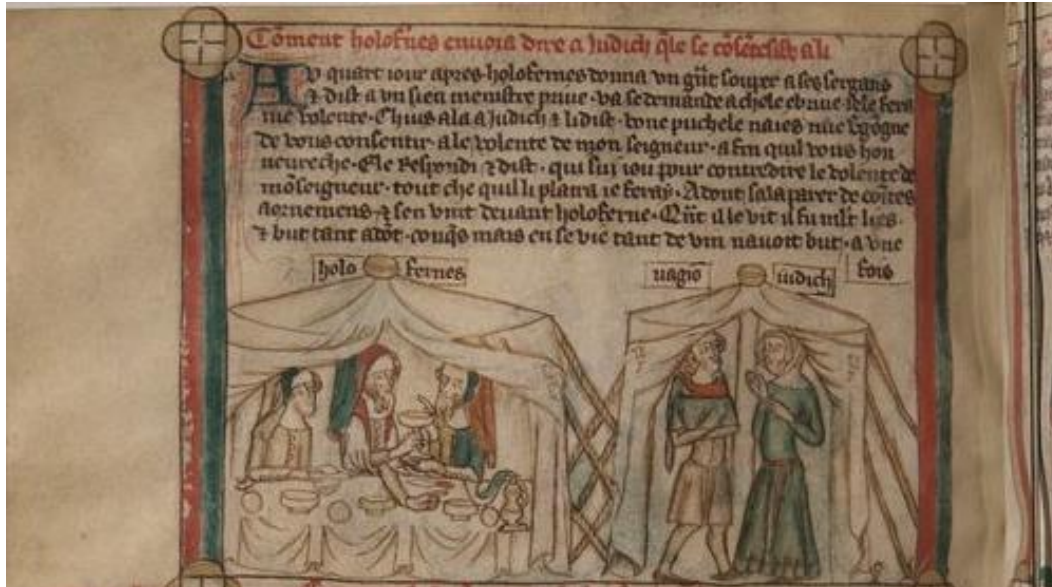 Cōment holofnes enuoia dire a Judich qle se cōsētesist a li
AV quart iour apres holofernes donna vn gn̄t souper a ses sergans
⁊ dist a vn sien menistre priue · va se demande a chele ebriue sele fera
me volente · Chius ala a Judich ⁊ li dist · bone puchele naies mie vgōgne
de vous consentir · a le volente de mon seigneur · a fin quil vous hon
neureche · Ele respondi ⁊ dist · qui sui iou pour contredire le volente de
mōseigneur · tout che quil li plaira ie feray · Adont sala parer de cointes
aornemens ⁊ sen vint deuant holoferne · Qn̄t il le vit il fu mlt lies ·
⁊ but tant adōt · conqs mais en se vie tant de vin nauoit but · a vne
fois
holo fernes
uagio iudich